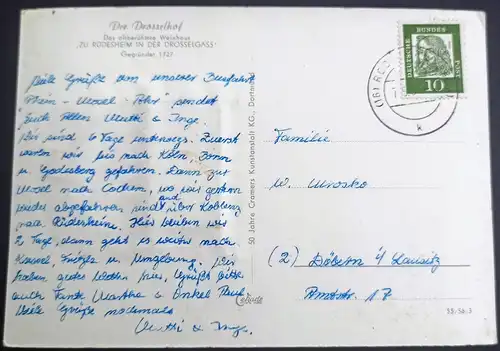 Der Drosselhof
Das altberühmte Weinhaus
"ZU RÜDESHEIM IN DER DROSSELGASS"
Gegründet 1727
Viele Grüße von unserer Busfahrt
Rhein - Mosel - Ahr sendet
Euch Allen Muthi & Inge.
Wir sind 6 Tage unterwegs. Zuerst
waren wir bis nach Köln, Bonn
u Godesberg gefahren. Dann zur
Mosel nach Cochem, wo wir gestern
wieder abgefahren sind und über Koblenz
nach Rüdesheim. Hier bleiben wir
2 Tage, dann geht es weiter nach
Kassel, Fritzlar u Umgebung. Wir
haben gutes Wetter hier. Grüßt bitte
auch Tante Martha & Onkel Paul.
Viele Grüße nochmals
Muthi & Inge.
50 Jahre Cramers Kunstanstalt KG., Dortmund
DEUTSCHE
BUNDES
POST
10
k
Familie
W. Mrosko
(2) Döbern i/ Lausitz
Amtstr. 17